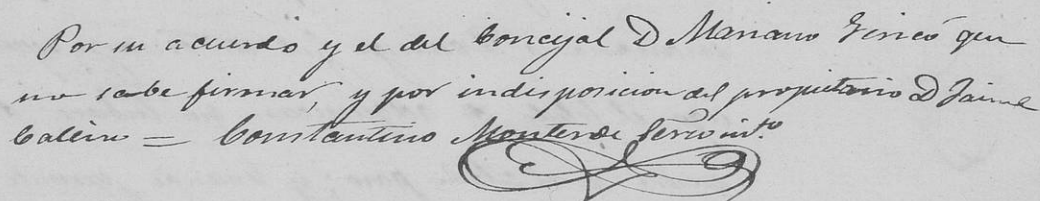 Por su acuerdo y el del Concejal D Mariano Gineó que
no sabe firmar, y por indisposicion del propietario D Jaime
Calein = Constantino Monterde Serio int.º